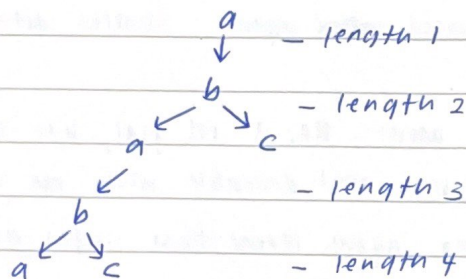 a - length 1
b - length 2
a c
b - length 3
a c - length 4